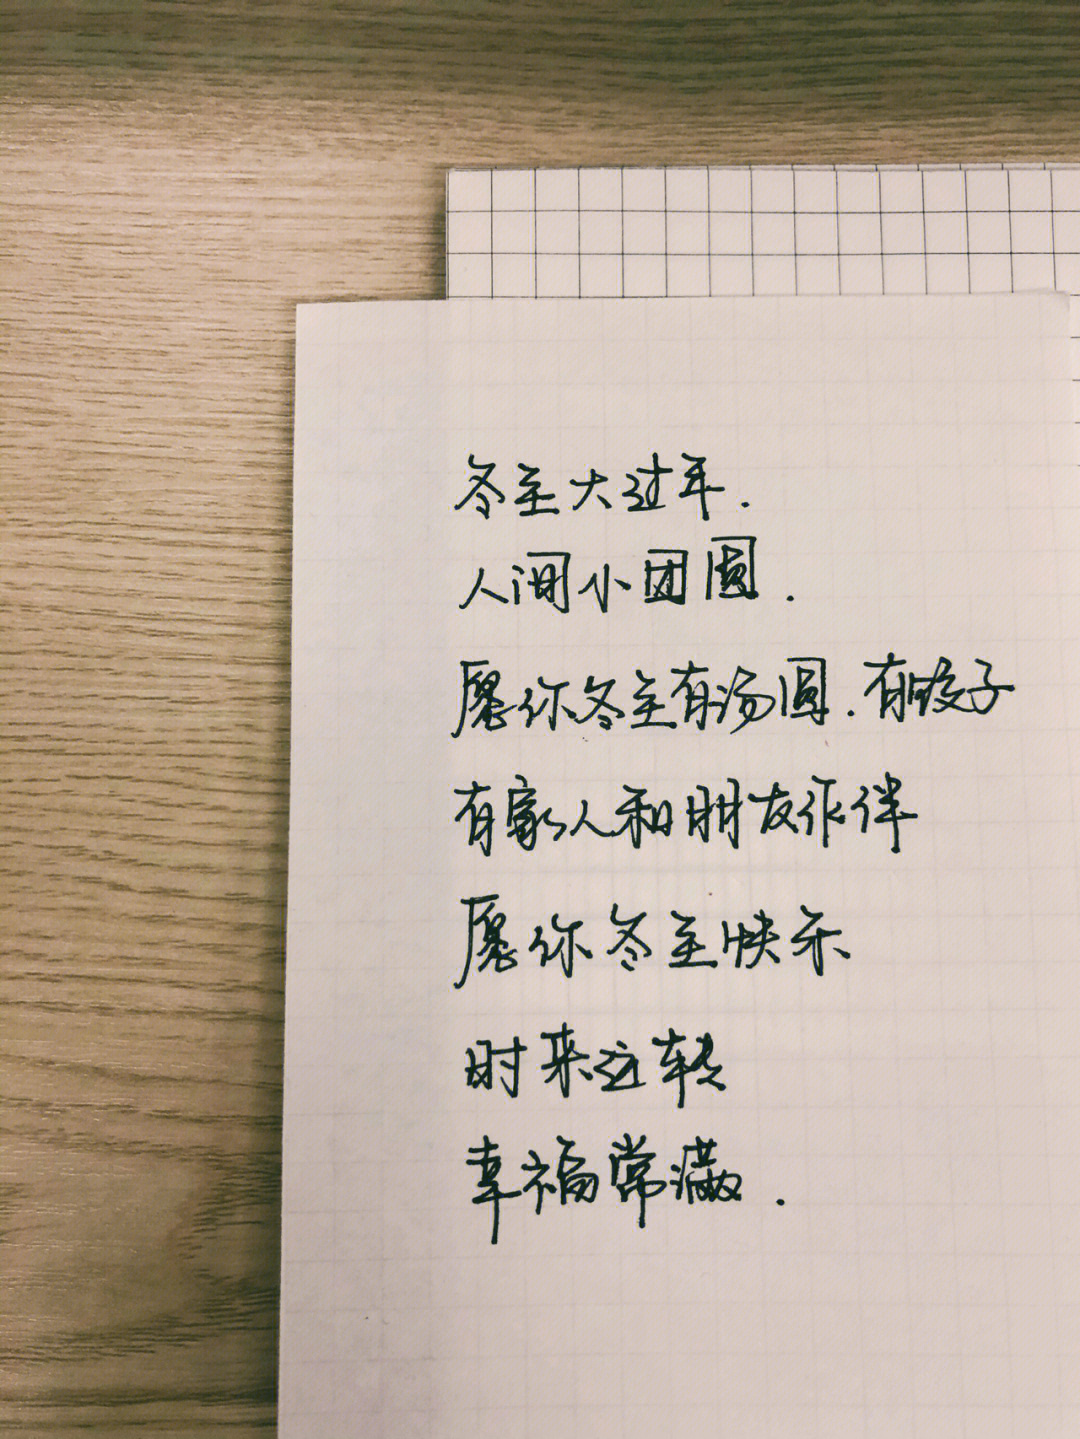 冬至大过年.
人间小团圆.
愿你冬至有汤圆.有饺子
有家人和朋友作伴
愿你冬至快乐
时来运转
幸福常满.